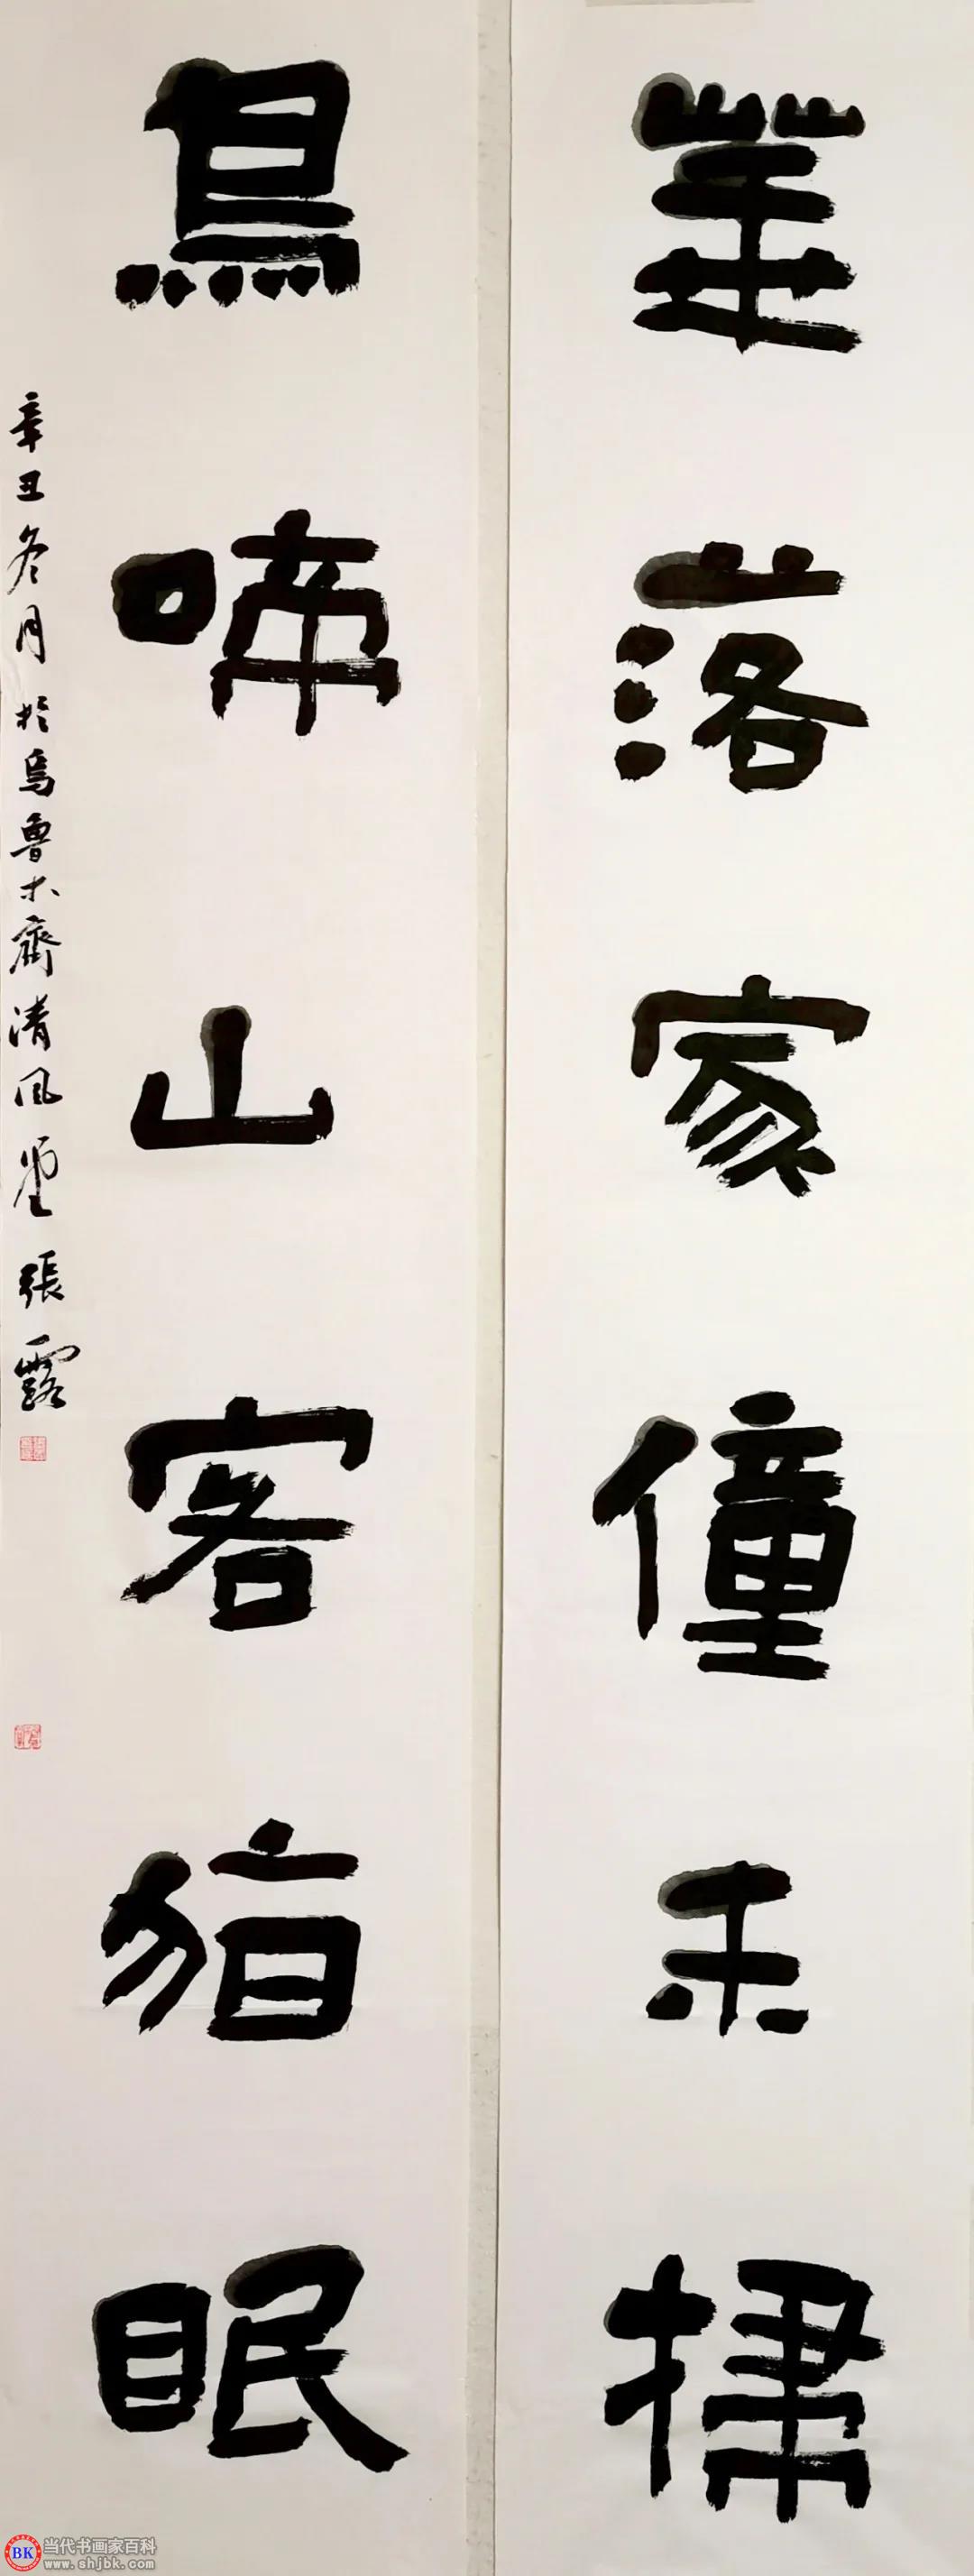 華落家僮未掃
鳥啼山客猶眠
辛丑冬月於烏魯木齊清風堂張露
BK 当代书画家百科
www.shjbk.com